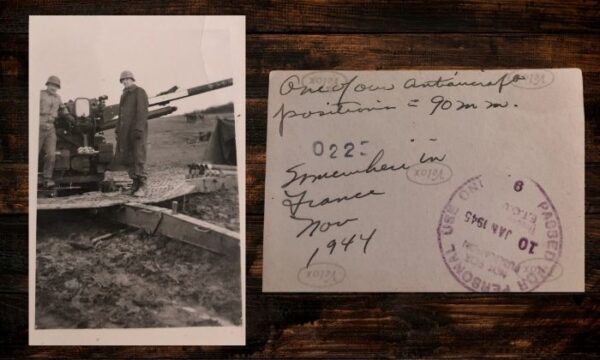 Velox Velox
One of our Antiaircraft
positions = 90 m m.
Velox
Somewhere in
France
Nov
1944
Velox Velox
PASSED FOR PERSONAL USE
10 JAN 1945
NOT FOR
PUBLICATION